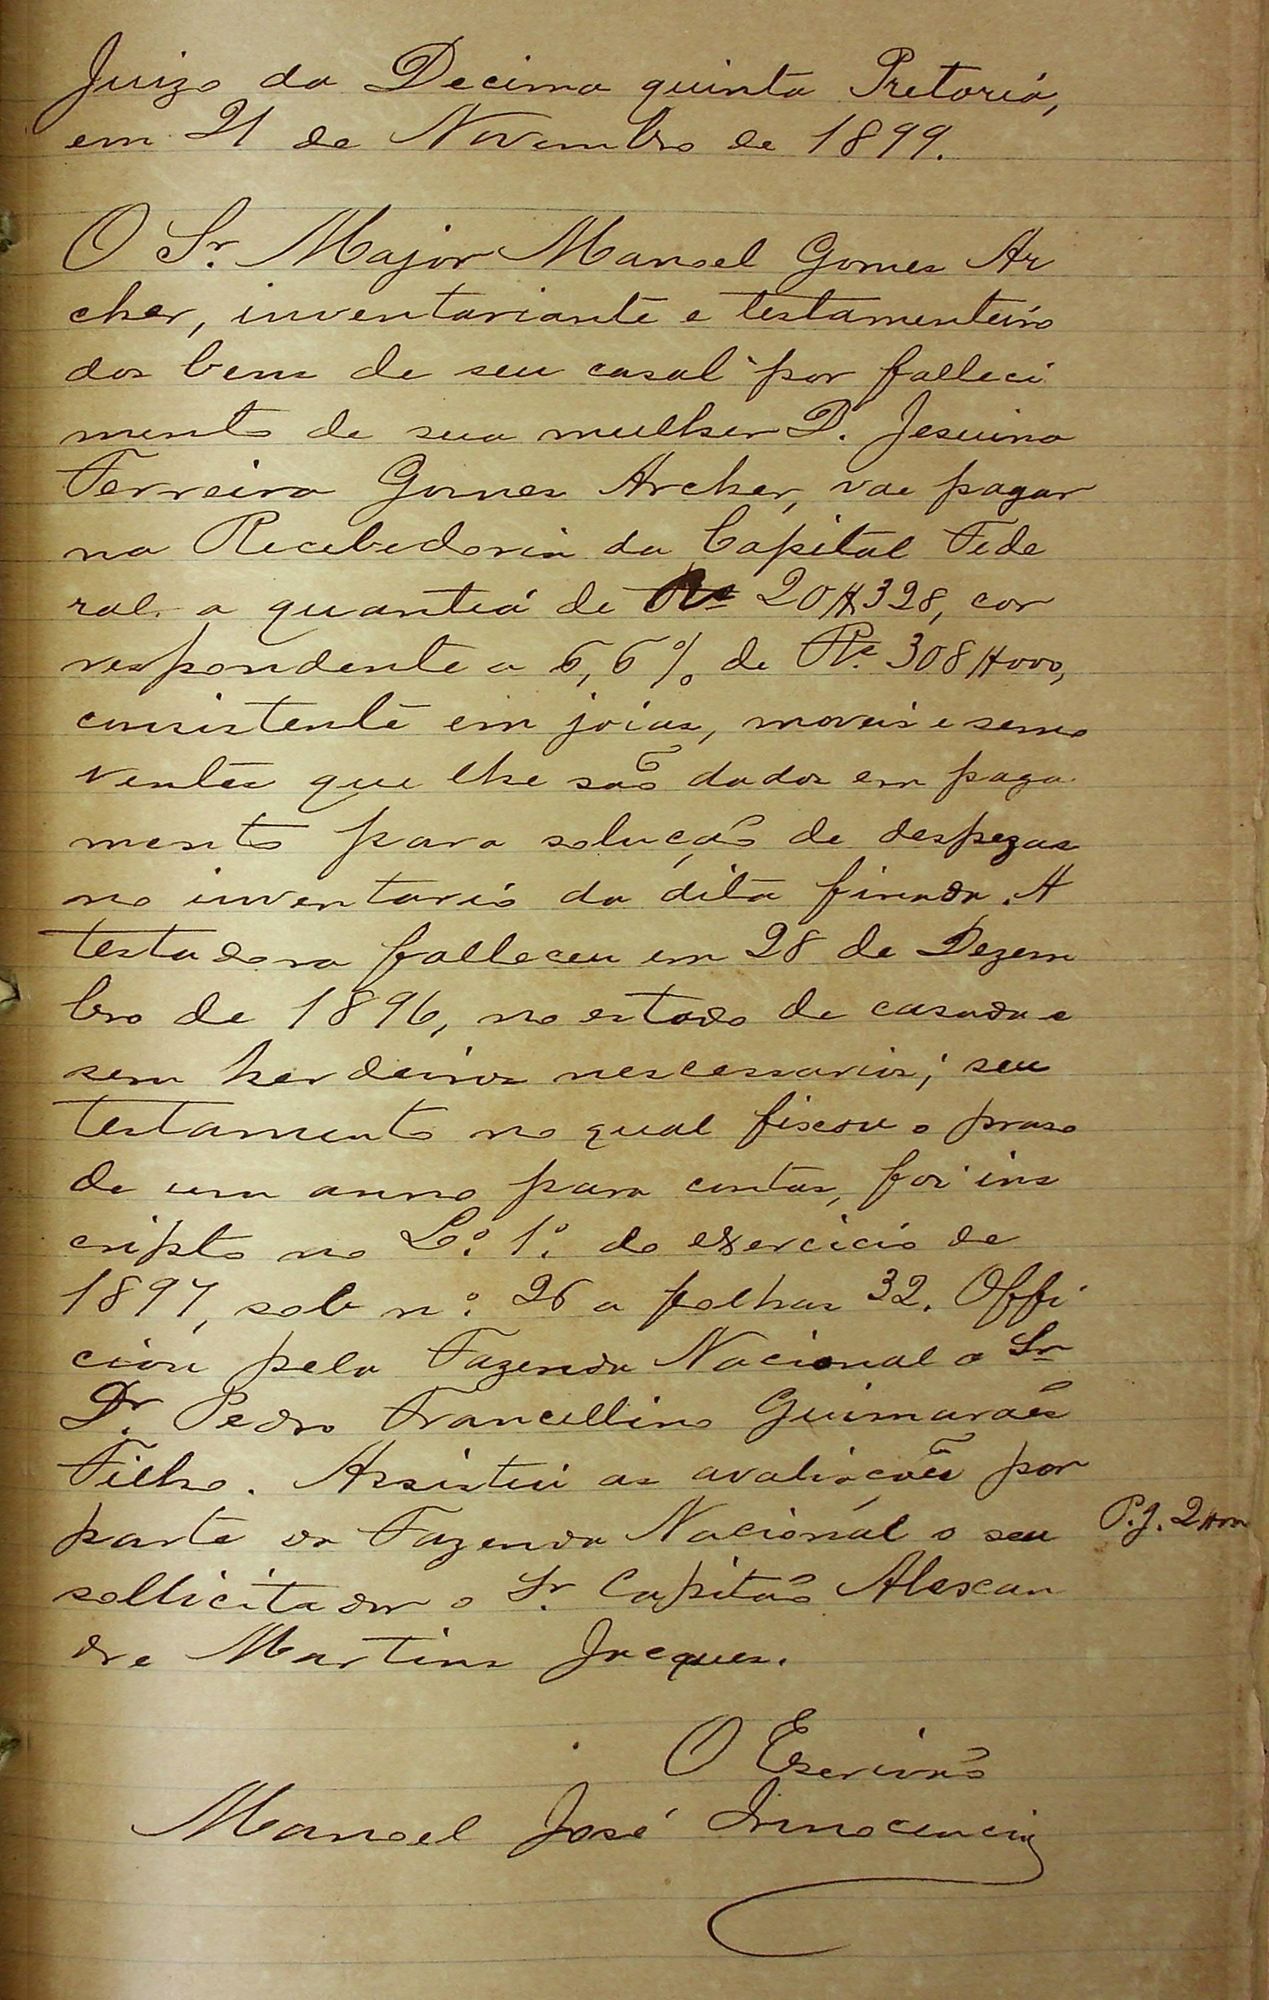 Juizo da Decima quinta Pretoria,
em 21 de Novembro de 1899.
O Sr. Major Manoel Gomes Ar
cher, inventariante e testamenteiro
dos bens de seu casal por falleci
mento de sua mulher D. Jesuina
Ferreira Gomes Archer, vae pagar
na Recebedoria da Capital Fede
ral a quantia de Rs 20$328, cor
respondente a 6,6% de Rs. 308$000,
consistente em joias, moveis e semo
ventes que lhe são dados em paga
mento para solução de despezas
no inventario da dita finada. A
testadora falleceu em 28 de Dezem
bro de 1896, no estado de casada e
sem herdeiros nescessarios; seu
testamento no qual fiscou o praso
de um anno para contas, foi ins
cripto no L.º 1.º do exercicio de
1897, sob n.º 26 a folhas 32. Offi
ciou pela Fazenda Nacional o Sr
Dr. Pedro Francellino Guimarães
Filho. Assistiu as avaliações por
parte da Fazenda Nacional o seu
P.J. 2$000
sollicitador o Sr. Capitão Alexan
dre Martins Jacques.
O Escrivão
Manoel José Innocencio